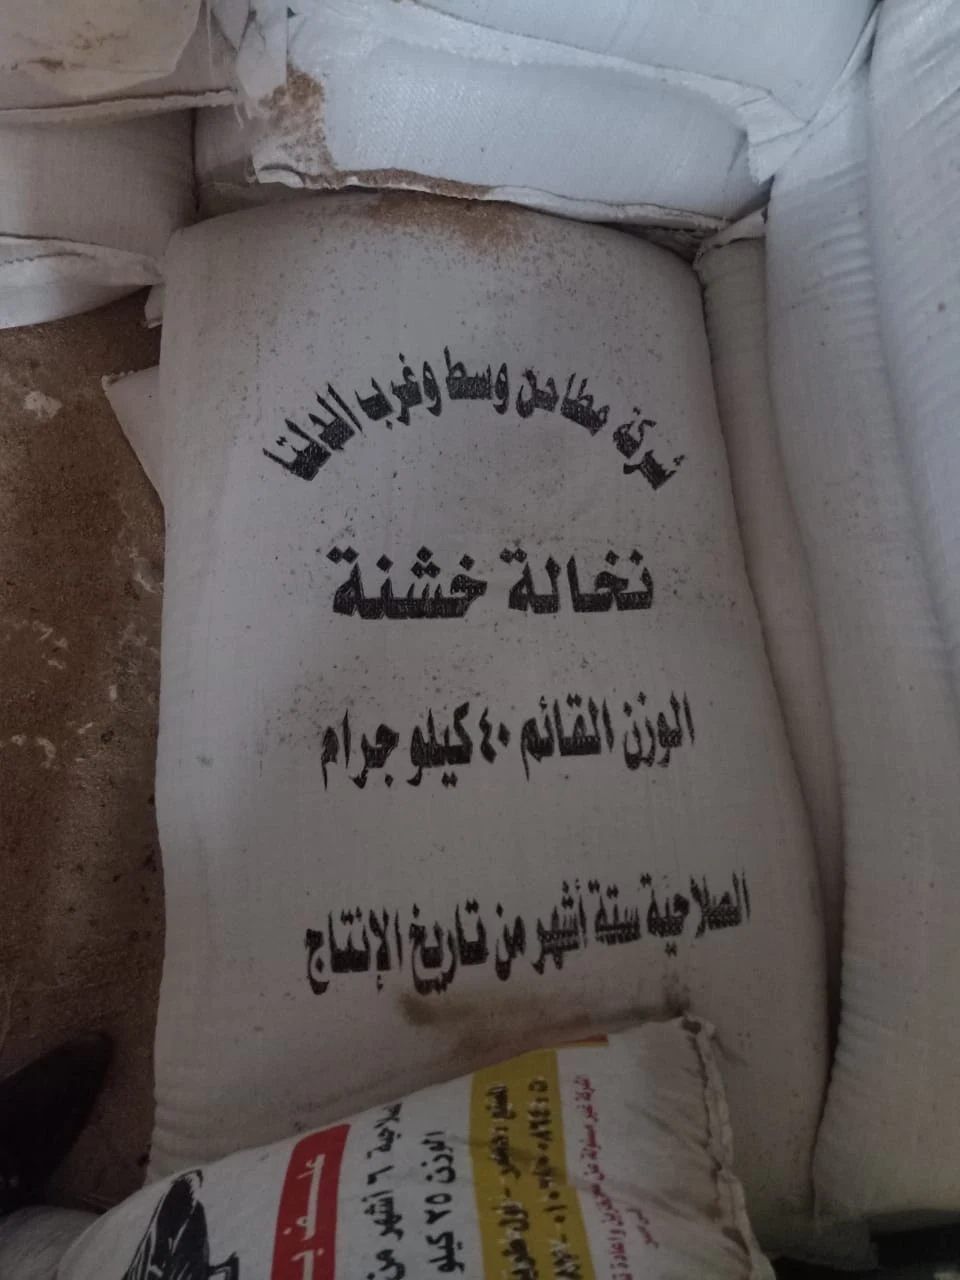 شركة مطاحن وسط وغرب الدلتا
نخالة خشنة
الوزن القائم ٤٠ كيلو جرام
الصلاحية ستة أشهر من تاريخ الإنتاج
علف
٦ أشهر من
الوزن ٢٥ كيلو
المصنع
الشركة غير مسئولة عن